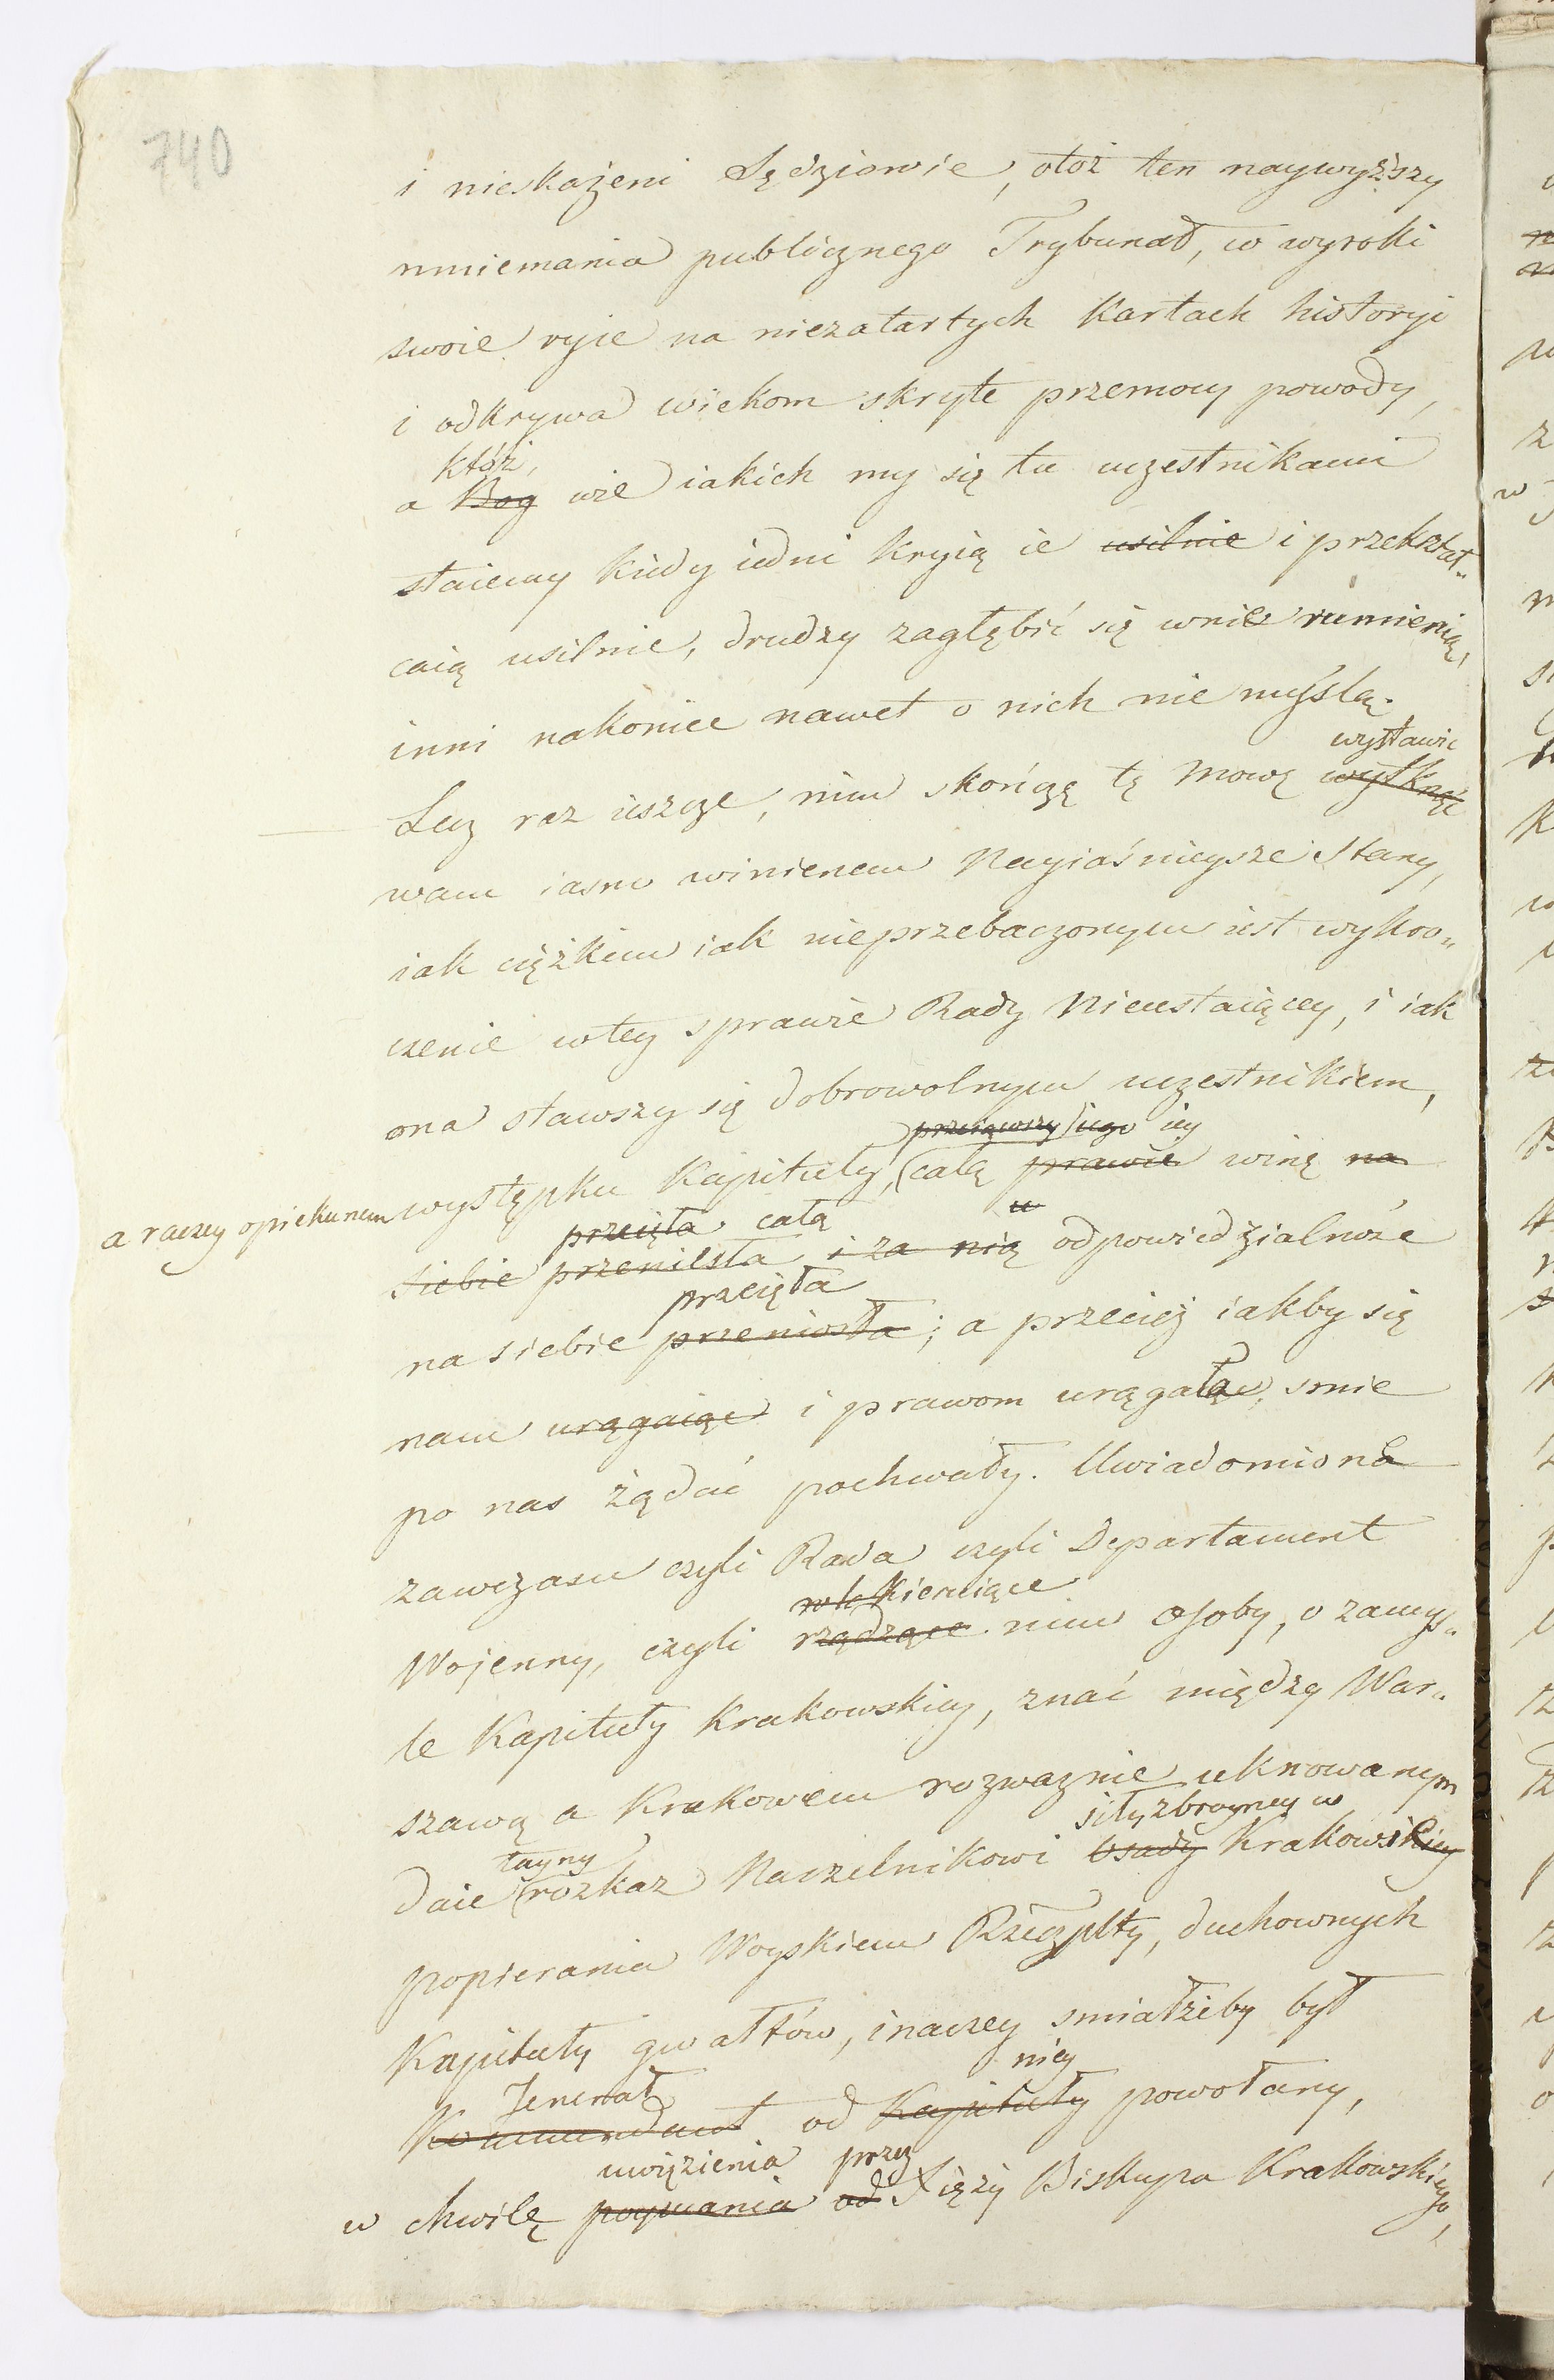 740
i nieskażeni Sędziowie, otoż ten naywyższy
mniemania publicznego Trybunał, co wyroki
swoie ryie na niezatartych kartach historyi
i odkrywa wiekom skryte przemocy powody,
któż,
a Bog wie iakich my się tu uczestnikami
staiemy kiedy iedni kryią ie usilnie i przekształ„
caią usilnie, drudzy zagłębić się w nie rumienią,
inni nakoniec nawet o nich nie myślą.
wystawić
Lecz raz ieszcze, nim skończę tę mowę wytknąć
wam iasno winienem Nayiaśnieysze Stany,
iak ciężkiem iak nieprzebaczonym iest wykro„
czenie w tey sprawie Rady Nieustaiącey, i iak
ona stawszy się dobrowolnym uczestnikiem,
przeiąwszy iego iey
a raczey opiekunem występku Kapituły, całą prawie winę na
przeięła całą
siebie przeniesła i za nią odpowiedzialność
przeięła
na siebie przeniosła; a przecież iakby się
nam urągaiąc i prawom urągała, smie
po nas żądać pochwały. Uwiadomiona
zawczasu czyli Rada czyli Departament
kieruiące
Wojenny, czyli rządzące nim osoby, o zamys„
le Kapituły Krakowskiey, znać między War„
szawą a Krakowem rozważnie uknowanym
siły zbroyney w
tayny
daie rozkaz Naczelnikowi osady Krakowskiey
popierania Woyskiem Rzeczplty, duchownych
Kapituły gwałtów, inaczey smiałżeby był
Jenerał niey
Kommendant od Kapituły powołany,
uwięzienia przez
w chwilę poymania od Xięży Biskupa Krakowskiego,